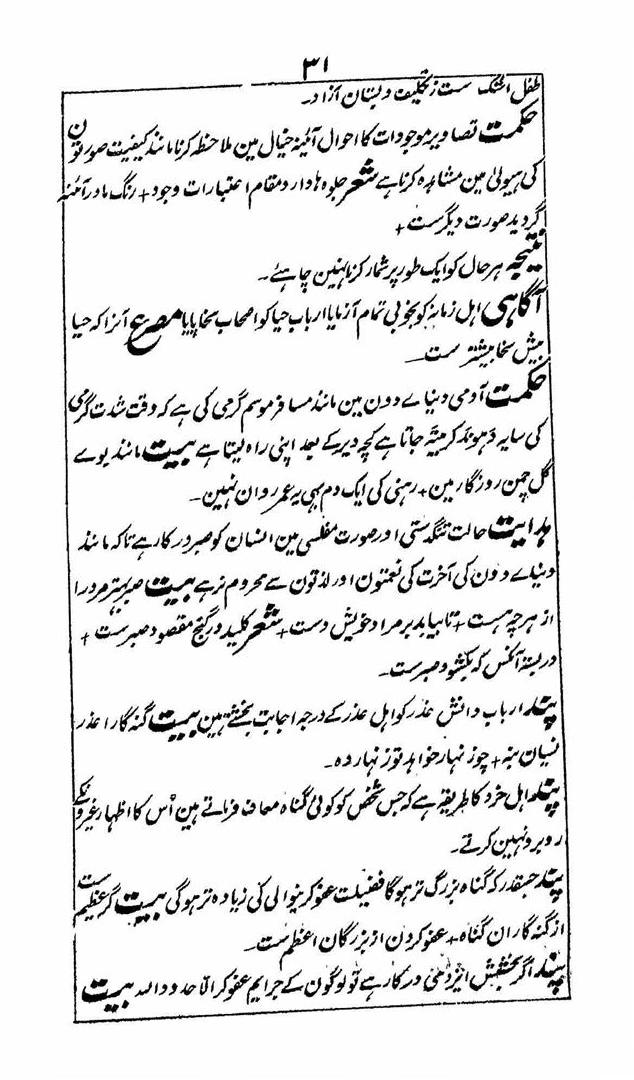 ۳۱
طفل اشک ست ز تکلیف دبستان آزاد۔
حکمت تصاویر موجودات کا احوال آئینۂ خیال مین ملاحظہ کرنا مانند کیفیت صورتون
کی ہیولیٰ مین مشاہدہ کرنا ہے شعر جلوہ ہا دارد مقام اعتبارات وجود + رنگ مادر آئنہ
گردید صورت دیگرست +
نتیجہ ہر حال کو ایک طور پر شمار کرنا نہین چاہئے۔
آگاہی اہل زمانہ کو بخوبی تمام آزمایا ارباب حیا کو اصحاب سخا پایا مصرع آنرا کہ حیا
بیش سخا بیشتر ست
حکمت آدمی دنیاے دون مین مانند مسافر موسم گرمی کی ہے کہ وقت شدت گرمی
کی سایہ ڈہونڈ کر بیٹہ جاتا ہے کچہ دیر کے بعد اپنی راہ لیتا ہے بیت مانند بوے
گل چمن روزگار مین + رہنی کی ایک دم بہی یہ عمر روان نہین۔
ہدایت حالت تنگدستی اور صورت مفلسی مین انسان کو صبر درکار ہے تاکہ مانند
دنیاے دون کی آخرت کی نعمتون اور لذتون سے محروم نرہے بیت صبر بہتر مرد را
از ہرچہ ہست + تا بیابد بر مراد خویش دست + شعر کلید در گنج مقصود صبرست +
در بستہ آنکس کہ بکشود صبرست۔
پند ارباب دانش عذر کو اہل عذر کے درجہ اجابت بخشتے ہین بیت گنہ گار را عذر
نسیان بنہ + چو زنہار خواہد تو زنہار دہ۔
پند اہل خرد کا طریقہ ہے کہ جس شخص کو کوئی گناہ معاف فرماتے ہین اُس کا اظہار غیرونکے
روبرو نہین کرتے۔
پند جسقدر کہ گناہ بزرگ تر ہوگا فضیلت عفو کرنیوالی کی زیادہ تر ہوگی بیت گر عظیم ست
از گنہ گاران گناہ + عفو کردن از بزرگان اعظم ست۔
پند اگر بخشش ایزدی درکار ہے تو لوگون کے جرایم عفو کر الا حدود اللہ بیت